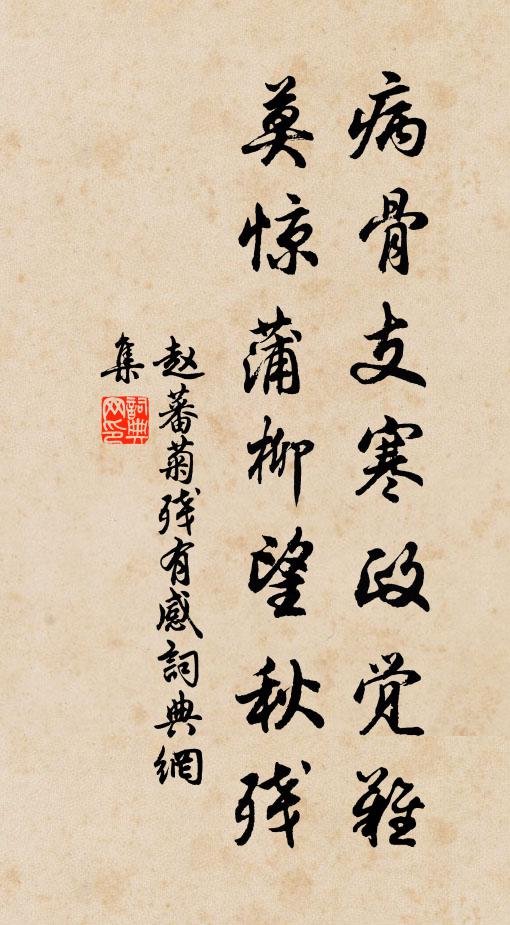 病骨支寒政觉难
莫惊蒲柳望秋残
赵蕃菊残有感詞典網
集
詞典网印